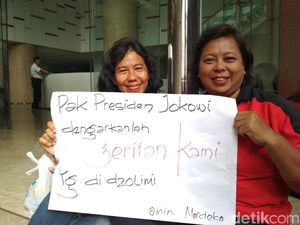 Pak Presiden Jokowi
dengarkanlah
jeritan Kami
Yg di dzolimi
amin Merdeka
detikcom